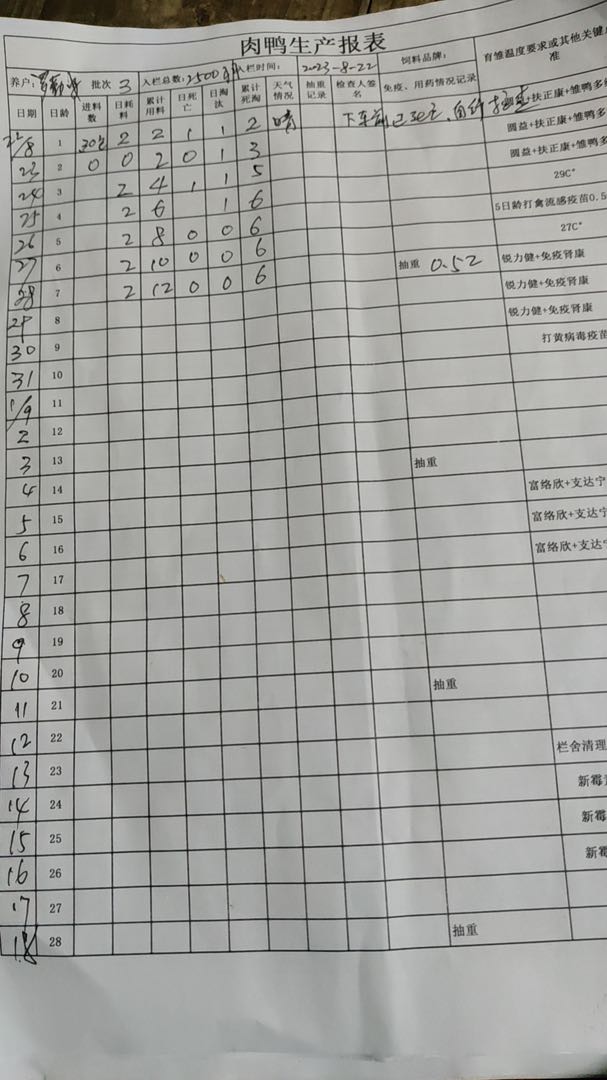 肉鸭生产报表
养户: 批次 3 入栏总数: 2500 入栏时间: 2023-8-22 饲料品牌: 育雏温度要求或其他关键
准
日期 日龄 进料数 日耗料 累计用料 日死亡 日淘汰 累计死淘 天气情况 抽重记录 检查人签名 免疫、用药情况记录
22/8 1 30包 2 2 1 1 2 晴 圆益+扶正康+雏鸭多
23 2 0 0 2 0 1 3 圆益+扶正康+雏鸭多
24 3 2 4 1 1 5 圆益+扶正康+雏鸭多
25 4 2 6 1 6 29C°
26 5 2 8 0 0 6 5日龄打禽流感疫苗0.5
27 6 2 10 0 0 6 27C°
28 7 2 12 0 0 6 抽重 0.52 锐力健+免疫肾康
29 8 锐力健+免疫肾康
30 9 锐力健+免疫肾康
31 10 打黄病毒疫苗
1/9 11
2 12
3 13 抽重
4 14
5 15 富络欣+支达宁
6 16 富络欣+支达宁
7 17 富络欣+支达宁
8 18
9 19
10 20 抽重
11 21
12 22
13 23 栏舍清理
14 24 新霉
15 25 新霉
16 26 新霉
17 27
18 28 抽重